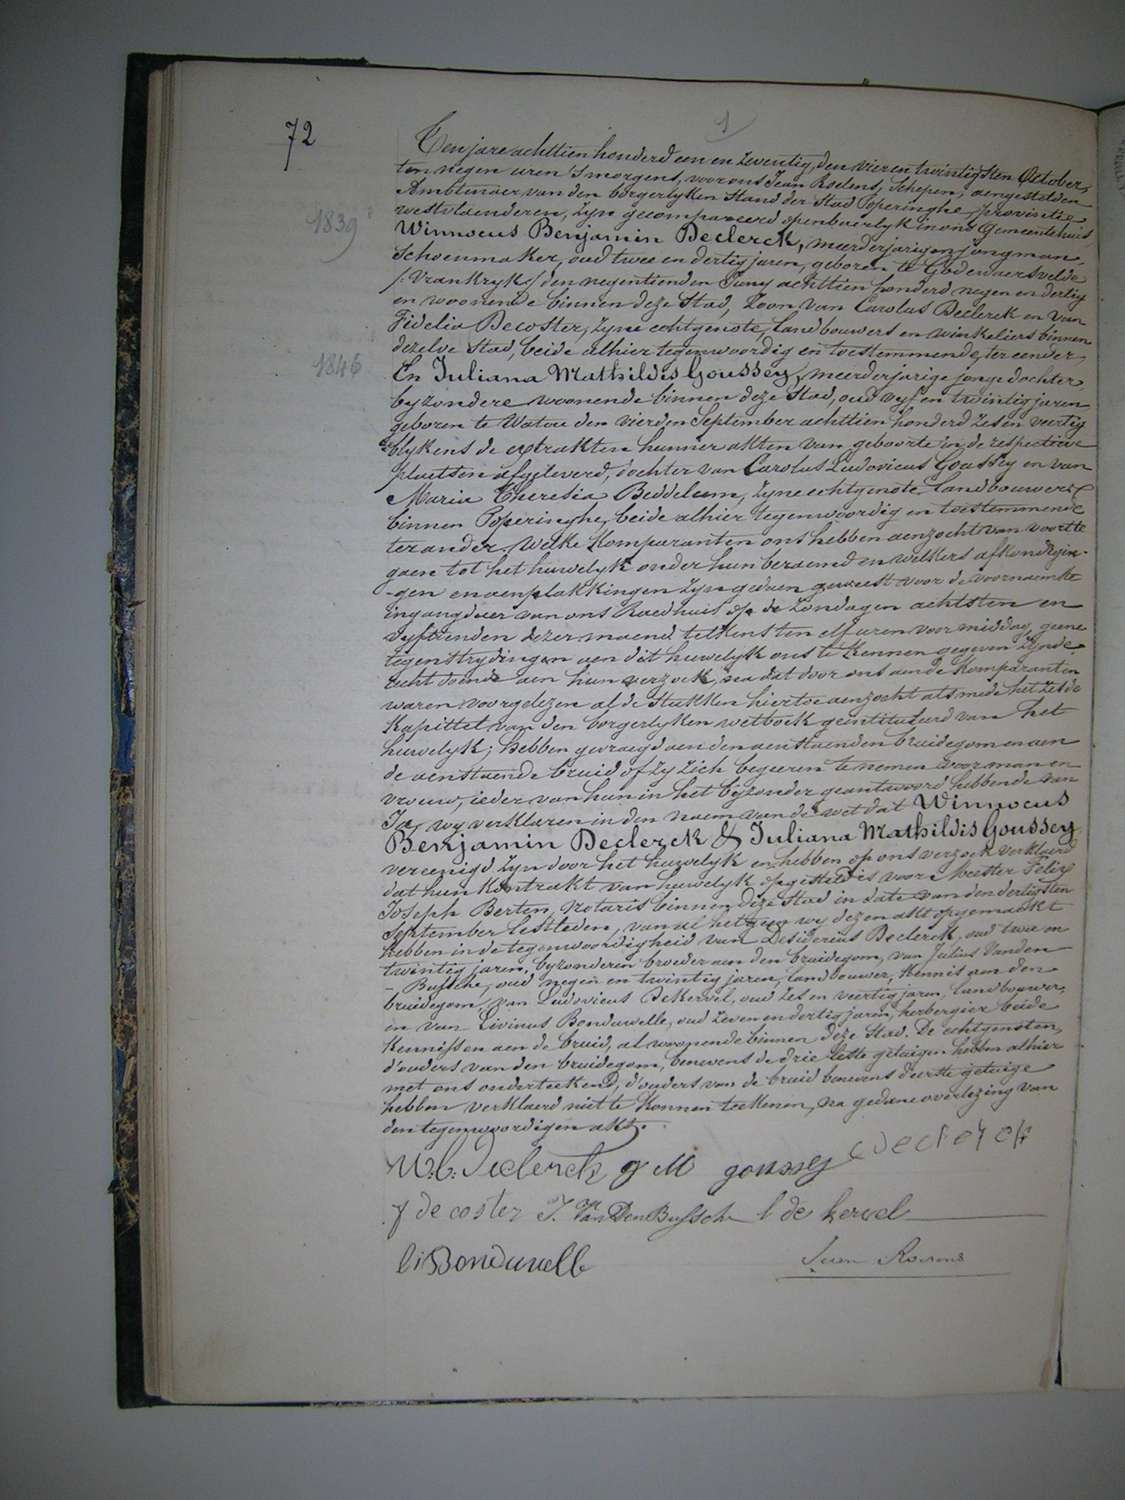 1
72
Ten jare achttien honderd een en zeventig, den vier en twintigsten October,
ten negen uren 's morgens, voor ons Jean Roelens, Schepen, aengestelden
Ambtenaer van den borgerlyken Stand der Stad Poperinghe, provincie
westvlaenderen, zyn gecompareerd openbaerlyk in ons Gemeentehuis
1839
Winnocus Benjamin Declerck, meerderjarigen jongman
Schoenmaker, oud twee en dertig jaren, geboren te Godewaersvelde
/: Vrankryk / den negentienden Juny achttien honderd negen en dertig
en woonende binnen deze Stad, Zoon van Carolus Declerck en van
Fidelia Decoster, zyne echtgenote, landbouwers en winkeliers binnen
dezelve Stad, beide alhier tegenwoordig en toestemmende, ter eender,
1846
En Juliana Mathildis Goussey, meerderjarige jonge dochter
byzondere woonende binnen deze Stad, oud vyf en twintig jaren
geboren te Watou den vierden September achttien honderd zes en veertig
blykens de extrakten hunner akten van geboorte in de respective
plaetsen afgeleverd, dochter van Carolus Ludovicus Goussey en van
Maria Theresia Beddeleem, zyne echtgenote, landbouwers
binnen Poperinghe, beide alhier tegenwoordig en toestemmende
ter ander, Welke Komparanten ons hebben aenzocht van voortte
gaen tot het huwelyk onder hun beraemd en welkers afkondigin-
-gen en aenplakkingen zyn gedaen geweest voor de voornaemste
ingangdeur van ons Raedhuis op de Zondagen achtsten en
vyftienden dezer maend telkens ten elf uren voormiddag, geene
tegenstrydingen aen dit huwelyk ons te kennen gegeven zynde,
recht doende aen hun verzoek, na dat door ons aen de Komparanten
waren voorgelezen al de stukken hiertoe aenzocht alsmede het zesde
Kapittel van den borgerlyken wetboek geintituleerd van het
huwelyk; hebben gevraegd aen den aenstaenden bruidegom en aen
de aenstaende bruid of zy zich begeeren te nemen voor man en
vrouw, ieder van hun in het byzonder geantwoord hebbende van
Ja, wy verklaren in den naem van de wet dat Winnocus
Benjamin Declerck & Juliana Mathildis Goussey
vereenigd zyn door het huwelyk en hebben op ons verzoek verklaerd
dat hun kontrakt van huwelyk opgesteld is voor Meester Felix
Joseph Berten, Notaris binnen deze Stad in date van den dertigsten
September lestleden, van al hetgeen wy dezen akt opgemaekt
hebben in de tegenwoordigheid van Desiderius Declerck, oud twee en
twintig jaren, byzonderen broeder aen den bruidegom, van Julius Vanden
- Bussche, oud negen en twintig jaren, landbouwer, Kennis aen den
bruidegom, van Ludovicus Dekervel, oud zes en veertig jaren, landbouwer,
en van Livinus Bonduwelle, oud zeven en dertig jaren, herbergier beide
Kennissen aen de bruid, al woonende binnen deze Stad. De echtgenoten,
d'ouders van den bruidegom, benevens de drie leste getuigen hebben alhier
met ons onderteekend, d'ouders van de bruid benevens d'eerste getuige
hebben verklaerd niet te Konnen teekenen, na gedane overlezing van
den tegenwoordigen akt.
W. b. Declerck g M goussey Declerck
f de coster J. VanDenBussche l de kervel
li Bonduwelle Jean Roelens